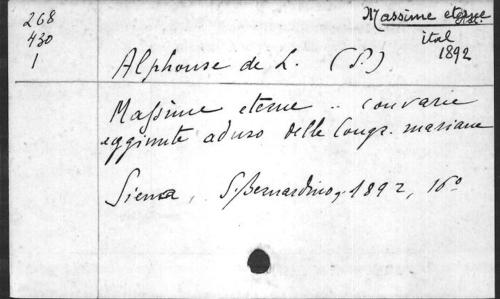 268
430
1
Massime eterne
ital
1892
Alphonse de L. (S.)
Massime eterne .. con varie
aggiunte ad uso delle Congr. mariane
Siena, S. Bernardino, 1892, 16°